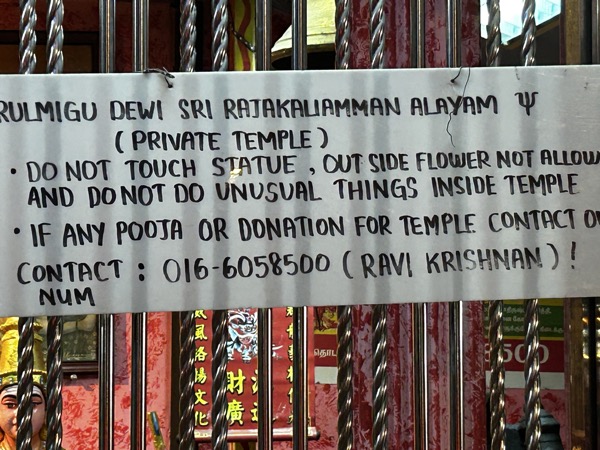 RULMIGU DEWI SRI RAJAKALIAMMAN ALAYAM Ψ
( PRIVATE TEMPLE )
• DO NOT TOUCH STATUE , OUT SIDE FLOWER NOT ALLOW
AND DO NOT DO UNUSUAL THINGS INSIDE TEMPLE
• IF ANY POOJA OR DONATION FOR TEMPLE CONTACT OU
CONTACT : 016-6058500 ( RAVI KRISHNAN ) !
NUM
風洛陽文化
財
廣進
500